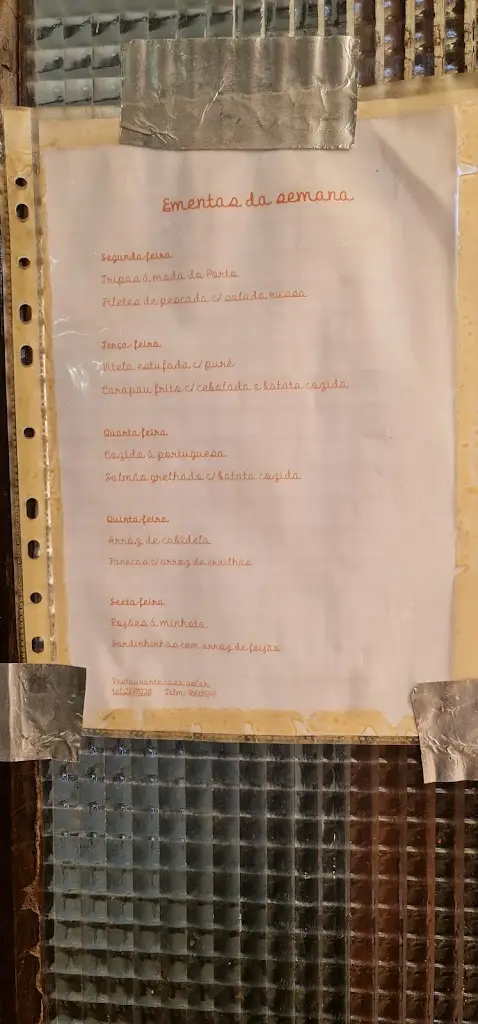 Ementas da semana
Segunda-feira
Tripas à moda do Porto
Filetes de pescada c/ salada russa
Terça-feira
Vitela estufada c/ puré
Carapau frito c/ cebolada e batata cozida
Quarta-feira
Cozido à portuguesa
Salmão grelhado c/ batata cozida
Quinta-feira
Arroz de cabidela
Panecas c/ arroz de ervilhas
Sexta-feira
Rojões à minhota,
Sardinhinhas com arroz de feijão
Restaurante casa solar
tel: Telm: